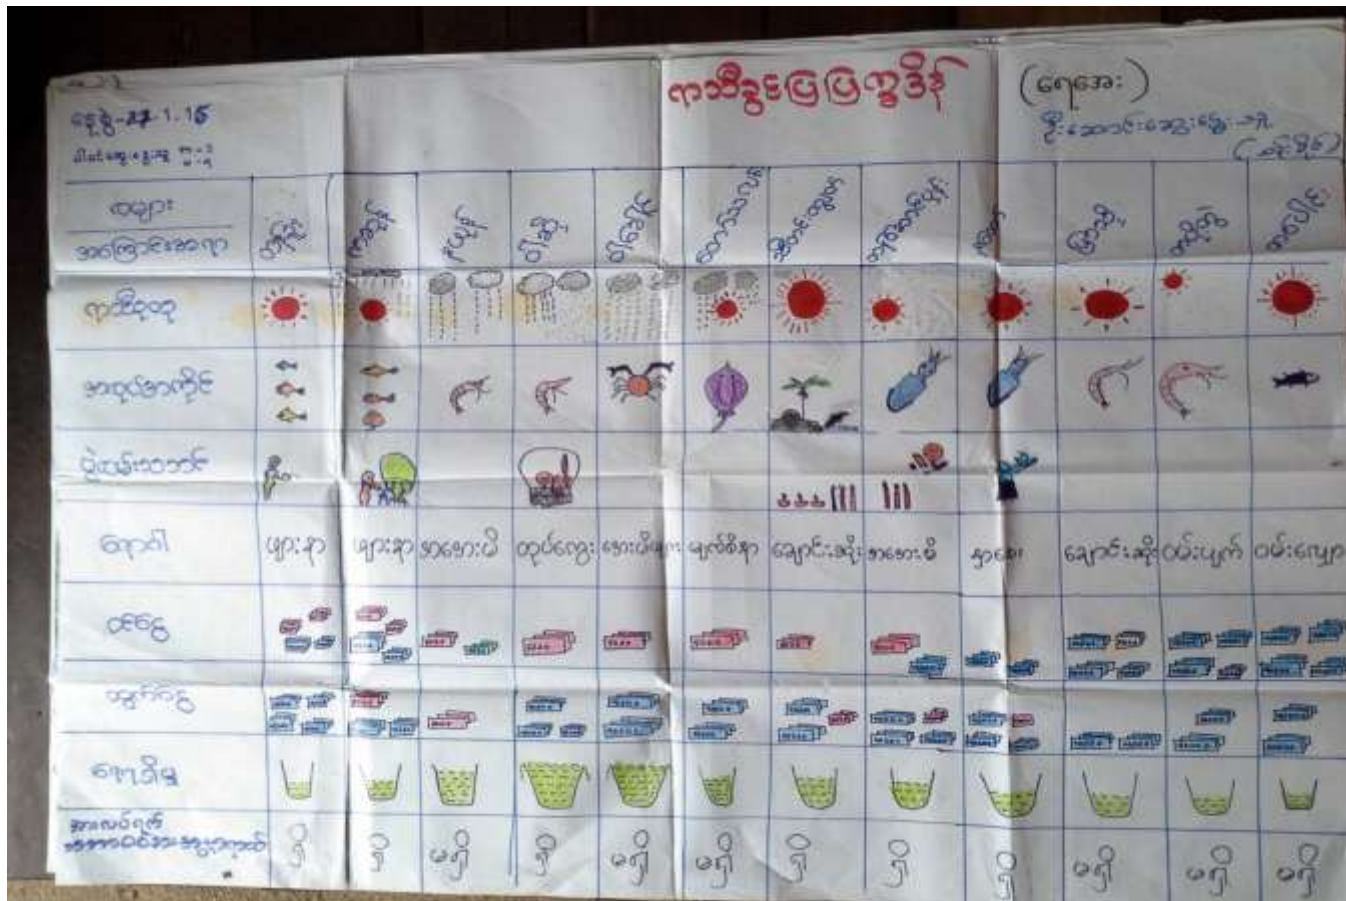 ရာသီခွင်ပြပြက္ခဒိန်
(ရေအေး)
နေ့စွဲ - 27-1-15
လများ
အကြောင်းအရာ
တန်ခူး ကဆုန် နယုန် ဝါဆို ဝါခေါင် တော်သလင်း သီတင်းကျွတ် တန်ဆောင်မုန်း နတ်တော် ပြာသို တပို့တွဲ တပေါင်း
ရာသီဥတု
အလုပ်အကိုင်
ပွဲလမ်းသဘင်
ရောဂါ ဖျားနာ ဖျားနာ အအေးမိ တုပ်ကွေး အအေးမိဖျား မျက်စိနာ ချောင်းဆိုး အအေးမိ နှာစေး ချောင်းဆိုး ဝမ်းပျက် ဝမ်းလျှော
ဝင်ငွေ
ထွက်ငွေ
ရေရရှိမှု
အားလပ်ရက်
ရှိ ရှိ မရှိ ရှိ မရှိ မရှိ ရှိ ရှိ ရှိ မရှိ မရှိ မရှိ